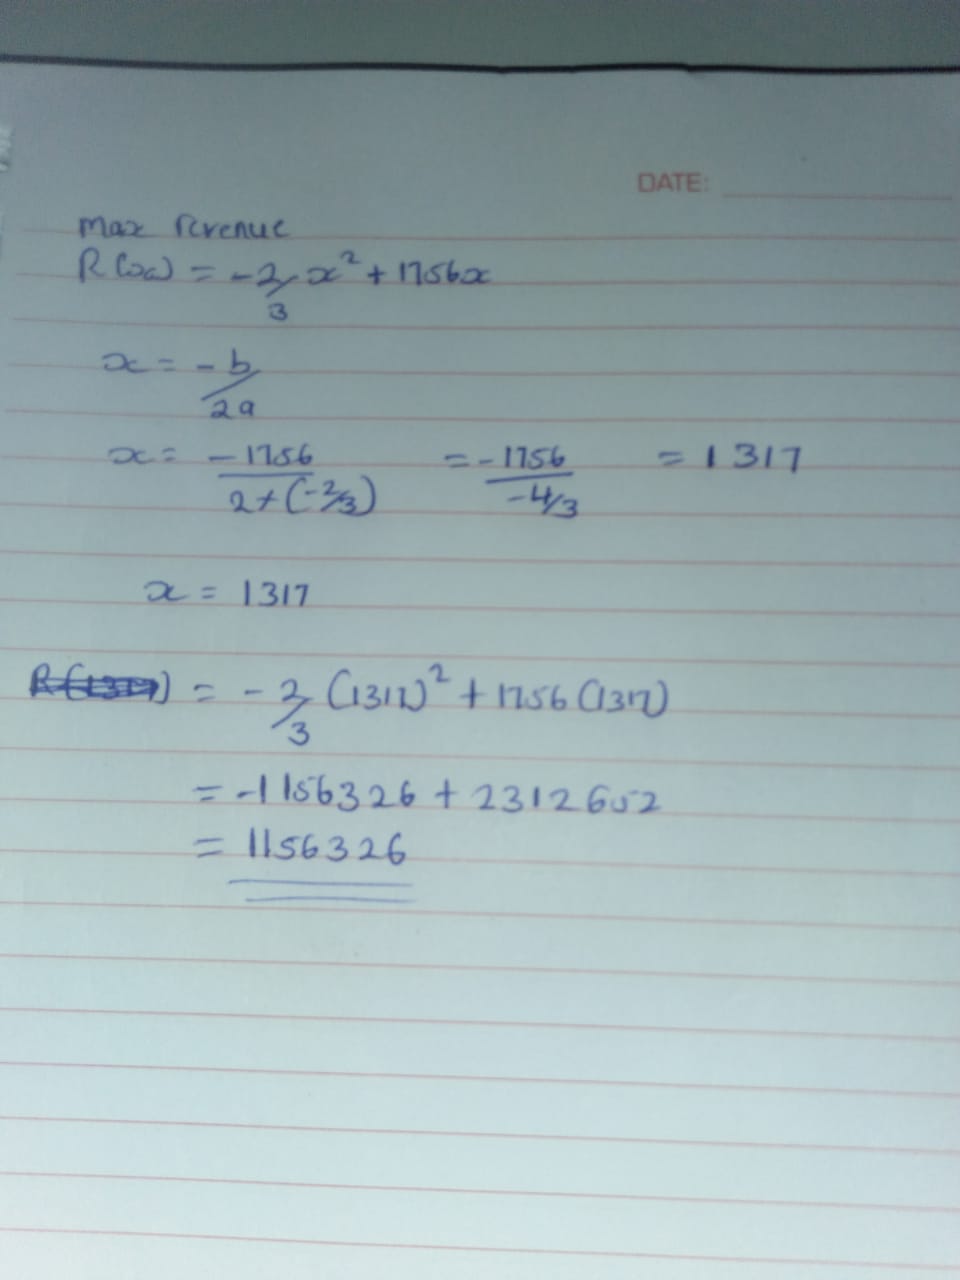 DATE:
max revenue
R(x) = -2/3 x² + 1756x
x = -b/2a
x = -1756/2×(-2/3) = -1756/-4/3 = 1317
x = 1317
R(1317) = -2/3 (1317)² + 1756(1317)
= -1156326 + 2312652
= 1156326